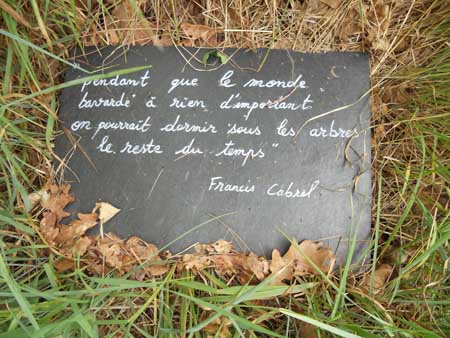 "pendant que le monde
bavarde à rien d'important
on pourrait dormir sous les arbres
le reste du temps"
Francis Cabrel